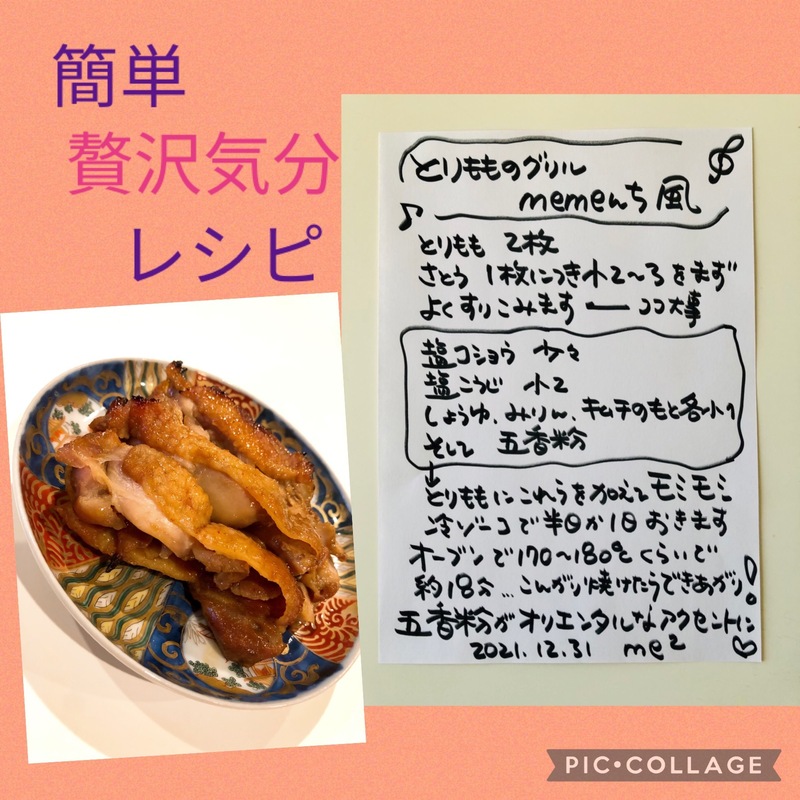 簡単
贅沢気分
レシピ
とりもものグリル
memeんち風
とりもも 2枚
さとう 1枚につき小2〜3をまず
よくすりこみます ー ココ大事
塩コショウ 少々
塩こうじ 小2
しょうゆ、みりん、キムチのもと各小1
そして 五香粉
とりももにこれらを加えてモミモミ
冷ゾーコで半日か1日おきます
オーブンで170〜180℃くらいで
約18分…こんがり焼けたらできあがり!
五香粉がオリエンタルなアクセントに♡
2021.12.31 me²
PIC•COLLAGE